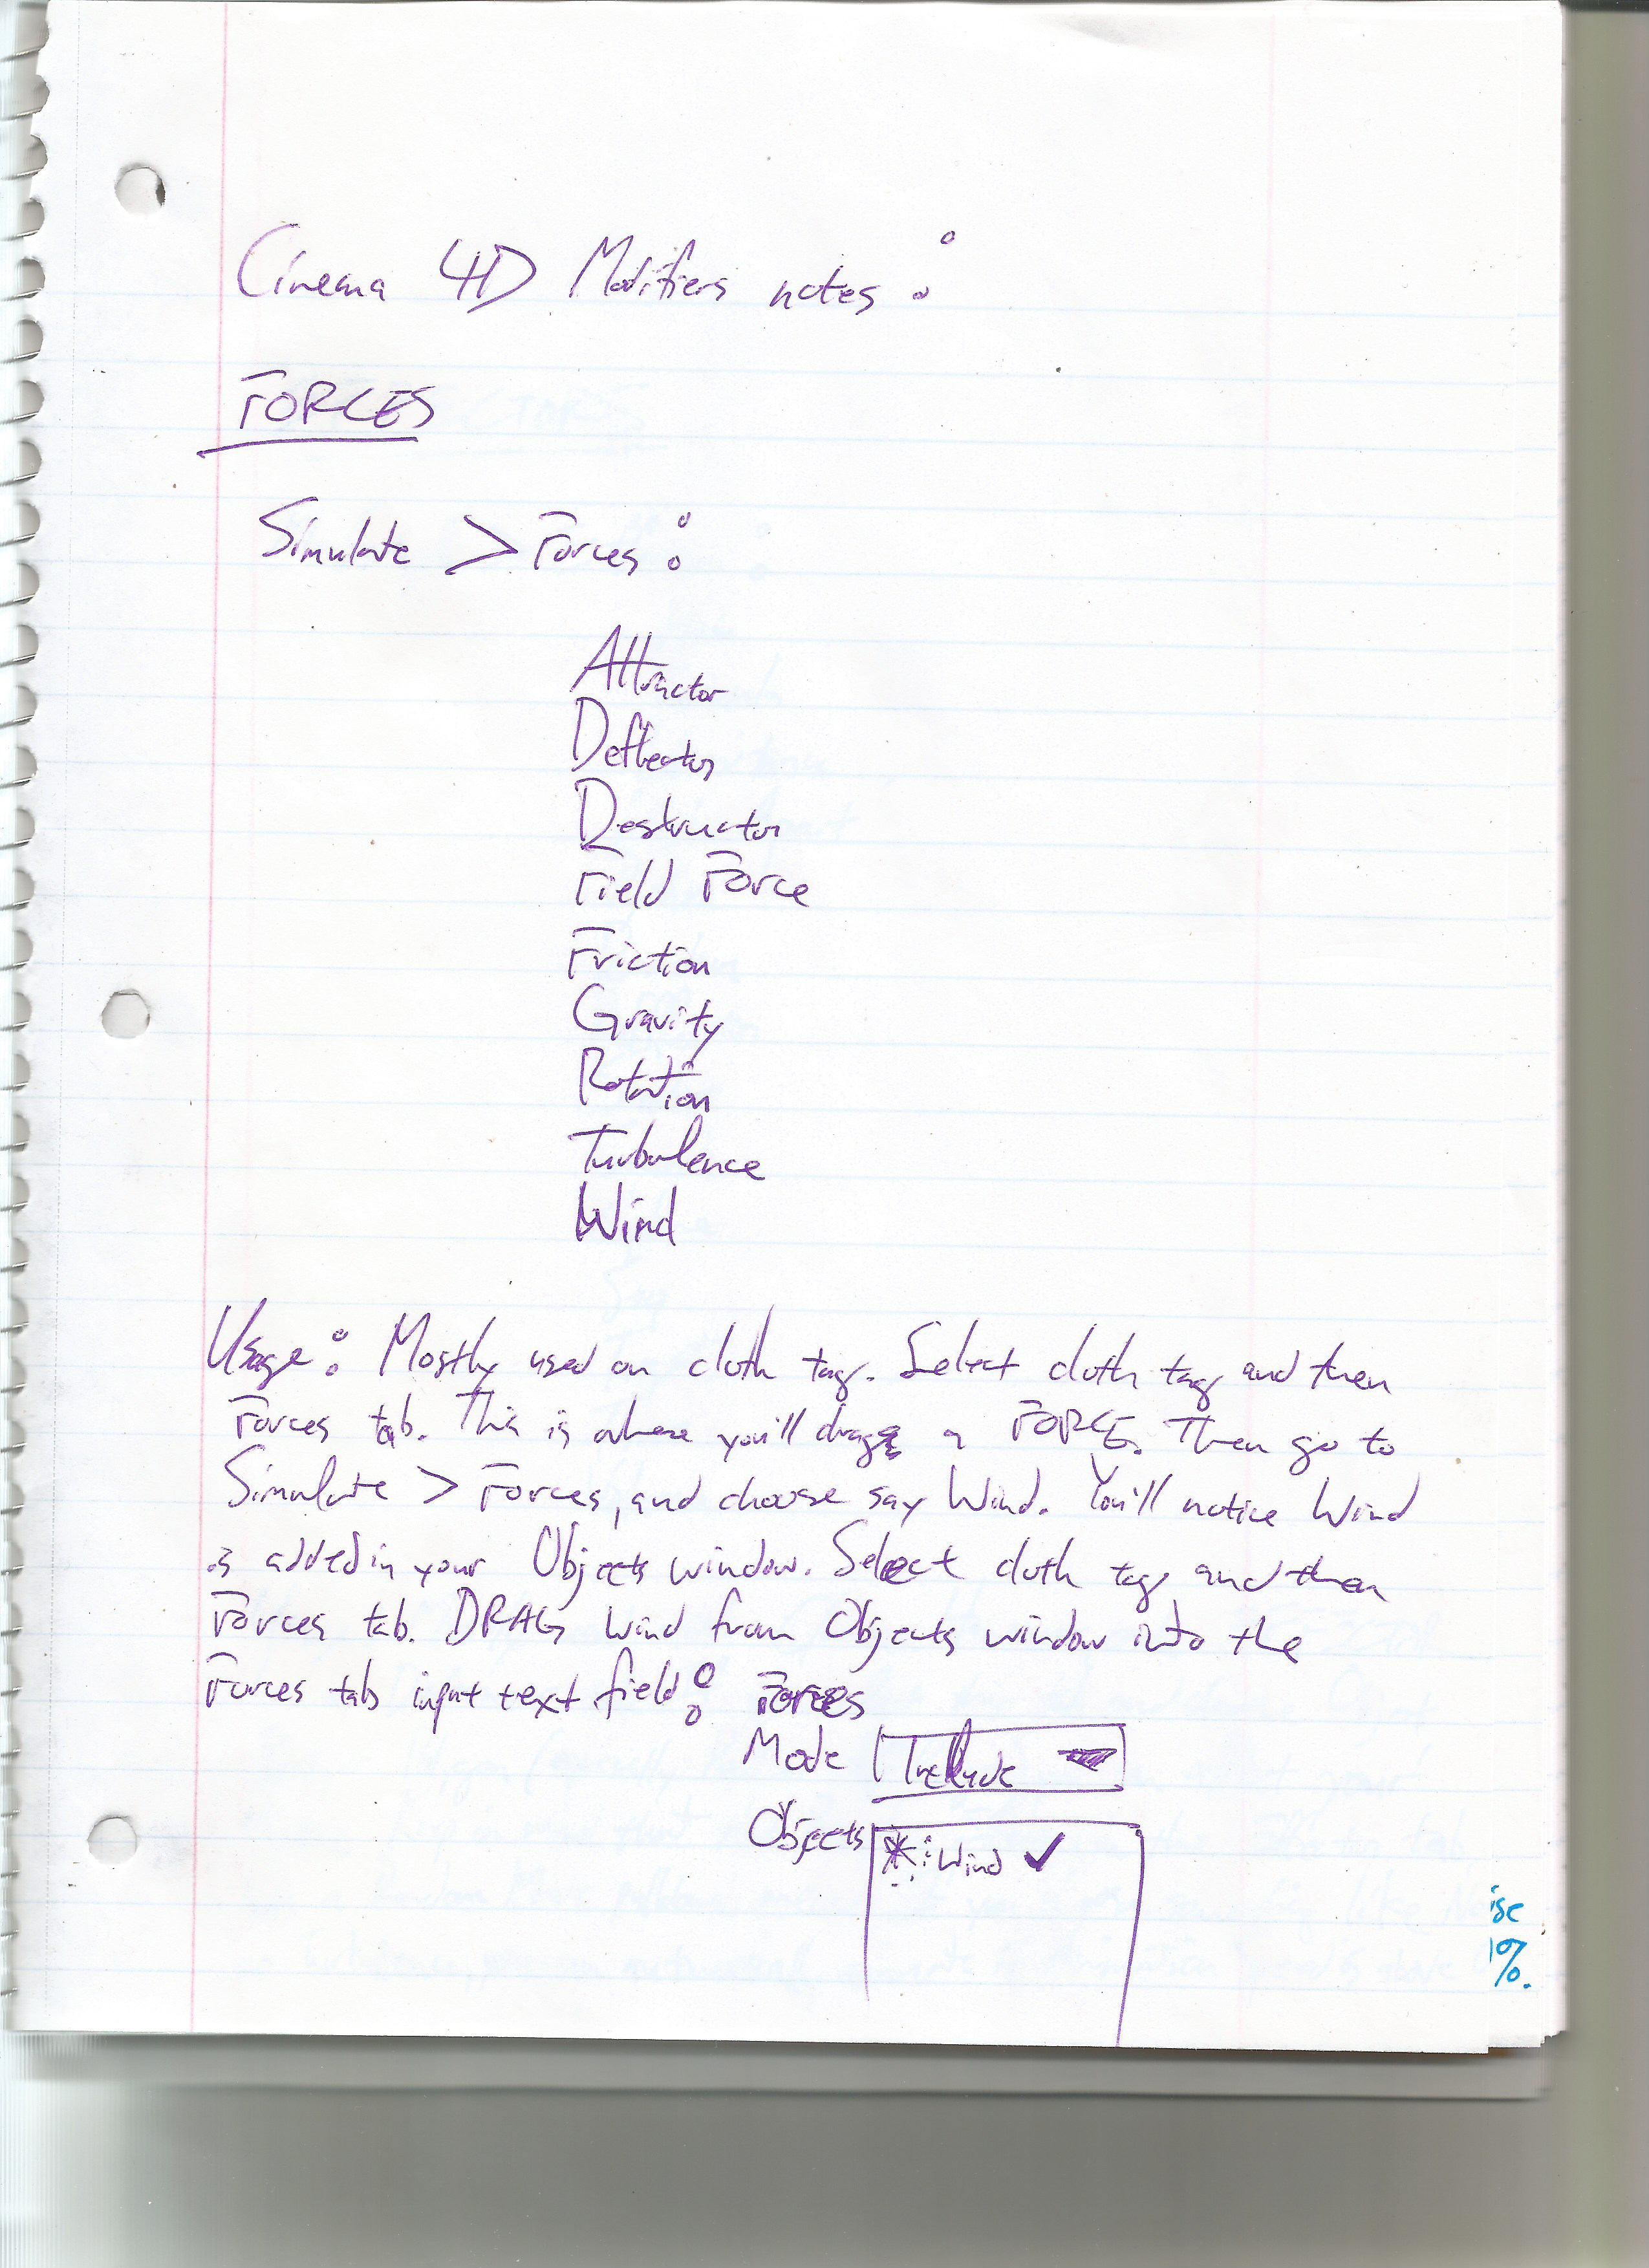 Cinema 4D Modifiers notes:
FORCES
Simulate > Forces:
Attractor
Deflector
Destructor
Field Force
Friction
Gravity
Rotation
Turbulence
Wind
Usage: Mostly used on cloth tag. Select cloth tag and then
Forces tab. This is where you'll drag a FORCE. Then go to
Simulate > Forces, and choose say Wind. You'll notice Wind
is added in your Objects window. Select cloth tag and then
Forces tab. DRAG Wind from Objects window into the
Forces tab input text field: Forces
Mode Include
Objects Wind ✓
ise
%.